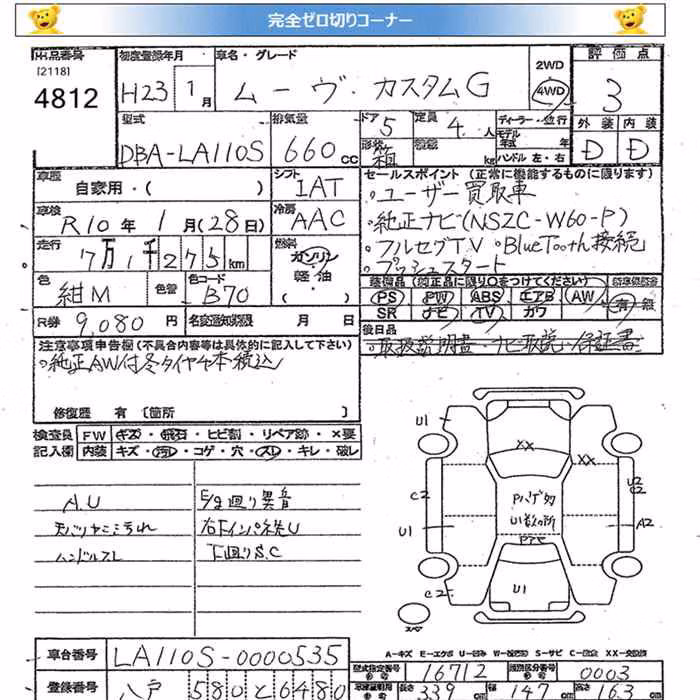 完全ゼロ切りコーナー
出品番号
[2118]
4812
初度登録年月
H23 1月
車名・グレード
ムーヴ・カスタムG
2WD
4WD
評価点
3
外装 内装
D D
型式
DBA-LA110S
排気量
660cc
ドア
5
形状
箱
定員
4.人
積載
kg
ディーラー・並行
モデル年式 年
ハンドル 左・右
車歴
自家用・( )
シフト
IAT
セールスポイント (正常に機能するものに限ります)
・ユーザー買取車
・純正ナビ(NSZC-W60-P)
・フルセグTV ・BlueTooth接続
・プッシュスタート
車検
R10年1月(28日)
冷房
AAC
走行
7万1千275km
燃料
ガソリン
軽・油
・( )
色
紺M
色替
色コード
B70
装備品 (純正品に限り○をつけてください)
PS PW ABS エアB AW
SR ナビ TV カワ
有・無
R券
9,080円
名変通知期限 月 日
後日品
・取扱説明書・ナビ取説・保証書
注意事項申告欄(不具合内容等は具体的に記入して下さい)
・純正AW付冬タイヤ4本積込
修復歴 有〔箇所 〕
検査員記入欄
FW キズ・飛石・ヒビ割・リペア跡・×要
内装 キズ・汚レ・コゲ・穴・スレ・キレ・破レ
A.U
天バツヤニシミ汚れ
ハンドルスレ
E/g廻り異音
右Fインパネ穴U
下廻りS.C
U1
XX
XX
C2
U2
C2
Pハゲ多
U1数ヶ所
U1
A2
C2
U1
スペア
A-キズ E-エクボ U-凹み W-波凹 S-サビ C-腐食 XX-交換済
車台番号
LA110S-0000535
型式指定番号
16712
類別区分番号
0003
登録番号
八戸 580 と 6480
長さ 339cm
幅 147cm
高さ 163